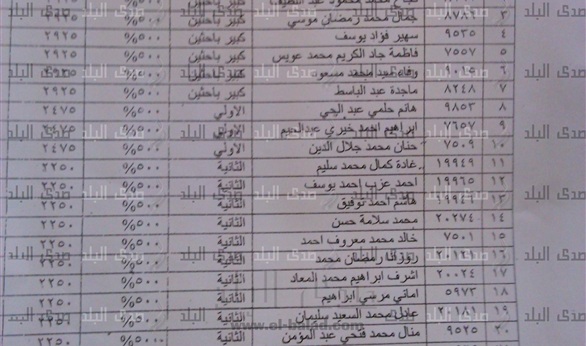 ٣ ٨٧٨٩ جمال محمد رمضان موسي كبير باحثين ٥٠٠% ٢٩٢٥
٤ ٩٥٣٥ سهير فؤاد يوسف كبير باحثين ٥٠٠% ٢٩٢٥
٥ ٧٥٥٧ فاطمة جاد الكريم محمد عويس كبير باحثين ٥٠٠% ٢٩٢٥
٦ ٩٠١٥ محمد مسعود كبير باحثين ٥٠٠% ٢٩٢٥
٧ ٨٢٤٨ ماجدة عبد الباسط كبير باحثين ٥٠٠% ٢٩٢٥
٨ ٩٨٥٣ هانم حلمي عبد الحي الاولي ٥٠٠% ٢٤٧٥
٩ ٧٦٥٧ ابراهيم احمد خيري عبدالحليم الاولي ٥٠٠% ٢٤٧٥
١٠ ٧٥٠٩ حنان محمد جلال الدين الاولي ٥٠٠% ٢٤٧٥
١١ ١٩٩٤٩ غادة كمال محمد سليم الثانية ٥٠٠% ٢٢٥٠
١٢ ١٩٩٦٥ احمد عزب احمد يوسف الثانية ٥٠٠% ٢٢٥٠
١٣ هاشم احمد توفيق الثانية ٥٠٠% ٢٢٥٠
١٤ ٢٠٢٧٤ محمد سلامة حسن الثانية ٥٠٠% ٢٢٥٠
١٥ ٧٥٠١ خالد محمد معروف احمد الثانية ٥٠٠% ٢٢٥٠
١٦ رمضان محمد الثانية ٥٠٠% ٢٢٥٠
١٧ ٢٠٠٢٤ اشرف ابراهيم محمد المعاد الثانية ٥٠٠% ٢٢٥٠
١٨ ٥٩٧٣ اماني مرسي ابراهيم الثانية ٥٠٠% ٢٢٥٠
١٩ ٢٠١٨١ عادل محمد السعيد سليمان الثانية ٥٠٠% ٢٢٥٠
٢٠ ٩٥٢٥ منال محمد فتحي عبد المؤمن الثانية ٥٠٠% ٢٢٥٠
صدى البلد
www.el-balad.com